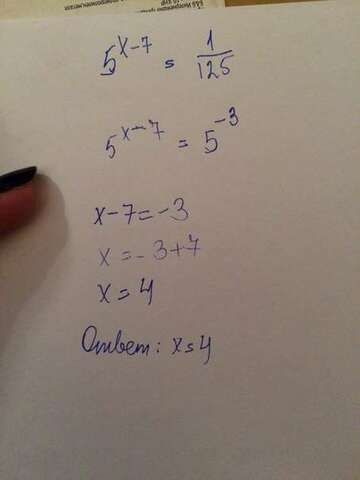 5^{x-7} = 1/125
5^{x-7} = 5^{-3}
x-7=-3
x=-3+7
x=4
Ответ: x=4